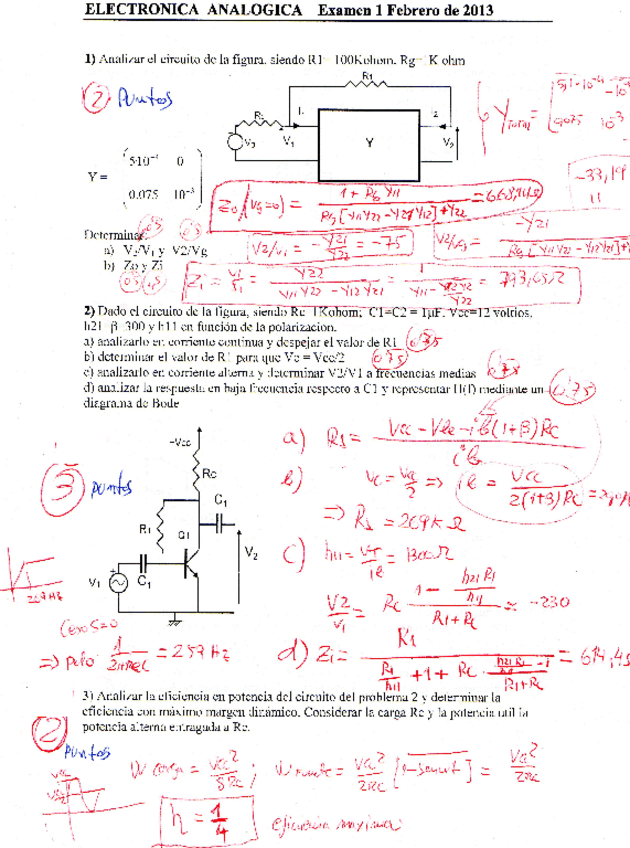 ELECTRONICA ANALOGICA Examen 1 Febrero de 2013
1) Analizar el circuito de la figura, siendo R1= 100Kohm. Rg= K ohm
2 Puntos
R1
Y
V1
V2
Y =
5·10⁻⁴ 0
0.075 10⁻³
Y Total =
-33,19
Zo (Vg=0) = 1 + Rg Y11 / Rg [Y11 Y22 - Y21 Y12] + Y22 =
Determinar
a) V2/V1 y V2/Vg
b) Zo y Zi
V2/V1 = - Y21 / Y22 = -75
V2/Vg = -Y21
Zi = V1 / I1 = Y22 / Y11 Y22 - Y12 Y21 =
2) Dado el circuito de la figura, siendo Rc=1Kohm; C1=C2 = 1µF. Vcc=12 voltios,
h21=β=300 y h11 en función de la polarización.
a) analizarlo en corriente continua y despejar el valor de R1 0,75
b) determinar el valor de R1 para que Vc = Vcc/2 0,75
c) analizarlo en corriente alterna y determinar V2/V1 a frecuencias medias 0,75
d) analizar la respuesta en baja frecuencia respecto a C1 y representar H(f) mediante un 0,75
diagrama de Bode
3 puntos
Vcc
Rc
C1
R1
Q1
V2
V1
C1
a) R1 = Vcc - Vbe - ib(1+β)Rc / ib
b) Vc = Vcc / 2 => ib = Vcc / 2(1+β)Rc
=> R1 = 269 K Ω
c) h11 = VT / ib = 1300 Ω
V2 / V1 = Rc 1 - h21 R1 / h11 / R1 + Rc ≈ -230
259 Hz
Cero S=0
=> polo 1 / 2πRC = 259 Hz
d) Zi = R1 / R1 / h11 + 1 + Rc h21 R1 / h11 - 1 / R1 + Rc =
3) Analizar la eficiencia en potencia del circuito del problema 2 y determinar la
eficiencia con máximo margen dinámico. Considerar la carga Rc y la potencia util la
potencia alterna entragada a Rc.
2 Puntos
W carga = Vcc² / 8Rc ; W fuente = Vcc² / 2Rc [1 - sen ωt] = Vcc² / 2Rc
Vcc
η = 1/4 eficiencia maxima